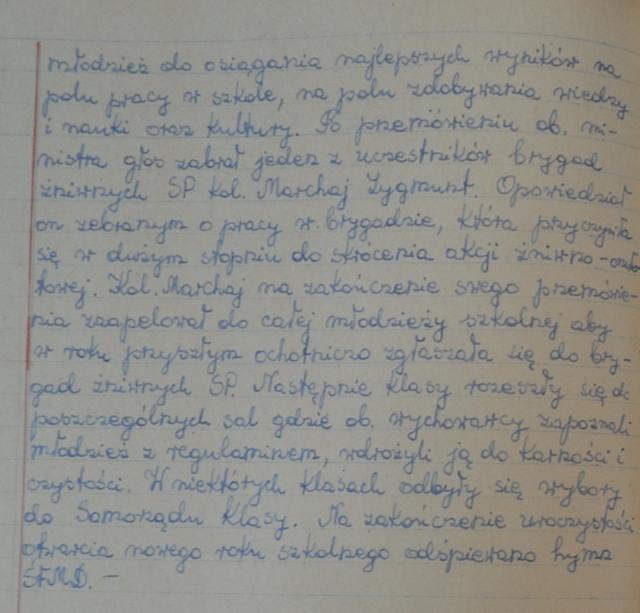 młodzież do osiągania najlepszych wyników na
polu pracy w szkole, na polu zdobywania wiedzy
i nauki oraz kultury. Po przemówieniu ob. mi-
nistra głos zabrał jeden z uczestników brygad
żniwnych SP kol. Marchaj Zygmunt. Opowiedział
on zebranym o pracy w brygadzie, która przyczyniła
się w dużym stopniu do skrócenia akcji żniwno-omło-
towej. Kol. Marchaj na zakończenie swego przemówie-
nia zaapelował do całej młodzieży szkolnej aby
w roku przyszłym ochotniczo zgłaszała się do bry-
gad żniwnych SP. Następnie klasy rozeszły się do
poszczególnych sal gdzie ob. wychowawcy zapoznali
młodzież z regulaminem, wdrożyli ją do karności i
czystości. W niektórych klasach odbyły się wybory
do Samorządu Klasy. Na zakończenie uroczystości
otwarcia nowego roku szkolnego odśpiewano hymn
ŚFMD. –